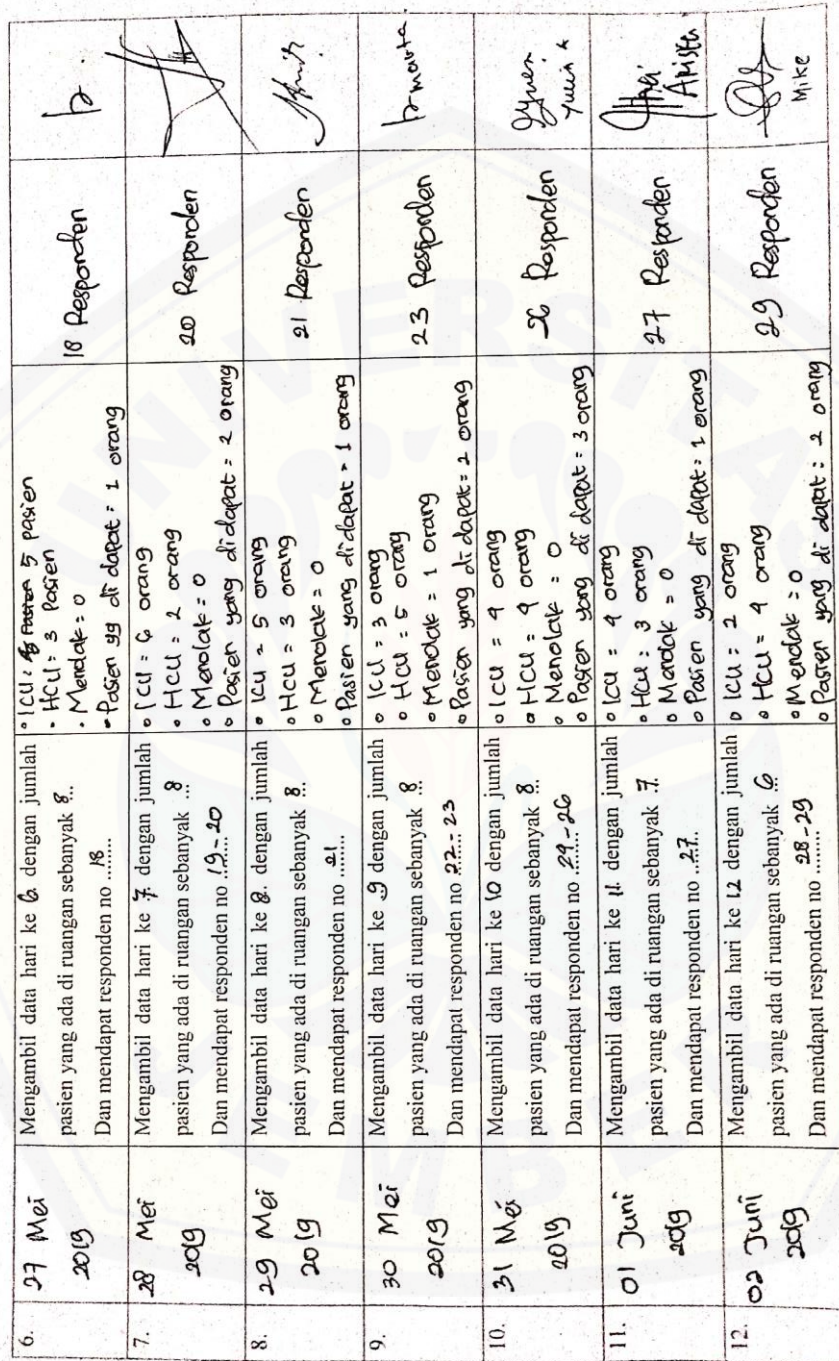 6.
27 Mei
2019
Mengambil data hari ke 6. dengan jumlah
pasien yang ada di ruangan sebanyak 8...
Dan mendapat responden no 18........
• ICU = 5 pasien
• HCU = 3 Pasien
• Menolak = 0
• Pasien yg di dapat = 1 orang
18 Responden
7.
28 Mei
2019
Mengambil data hari ke 7. dengan jumlah
pasien yang ada di ruangan sebanyak 8...
Dan mendapat responden no 19-20........
• ICU = 6 orang
• HCU = 2 orang
• Menolak = 0
• Pasien yang didapat = 2 orang
20 Responden
8.
29 Mei
2019
Mengambil data hari ke 8. dengan jumlah
pasien yang ada di ruangan sebanyak 8...
Dan mendapat responden no 21........
• ICU = 5 orang
• HCU = 3 orang
• Menolak = 0
• Pasien yang didapat = 1 orang
21 Responden
9.
30 Mei
2019
Mengambil data hari ke 9 dengan jumlah
pasien yang ada di ruangan sebanyak 8...
Dan mendapat responden no 22...... 23
• ICU = 3 orang
• HCU = 5 orang
• Menolak = 1 orang
• Pasien yang di dapat = 2 orang
23 Responden
marta
10.
31 Mei
2019
Mengambil data hari ke 10 dengan jumlah
pasien yang ada di ruangan sebanyak 8...
Dan mendapat responden no 24-26........
• ICU = 4 orang
• HCU = 4 orang
• Menolak = 0
• Pasien yang di dapat = 3 orang
26 Responden
11.
01 Juni
2019
Mengambil data hari ke 11. dengan jumlah
pasien yang ada di ruangan sebanyak 7...
Dan mendapat responden no 27........
• ICU = 4 orang
• HCU = 3 orang
• Menolak = 0
• Pasien yang di dapat = 1 orang
27 Responden
12.
02 Juni
2019
Mengambil data hari ke 12 dengan jumlah
pasien yang ada di ruangan sebanyak 6
Dan mendapat responden no 28-29........
• ICU = 2 orang
• HCU = 4 orang
• Menolak = 0
• Pasien yang di dapat = 2 orang
29 Responden
Mike
UNIVERSITAS
JEMBER